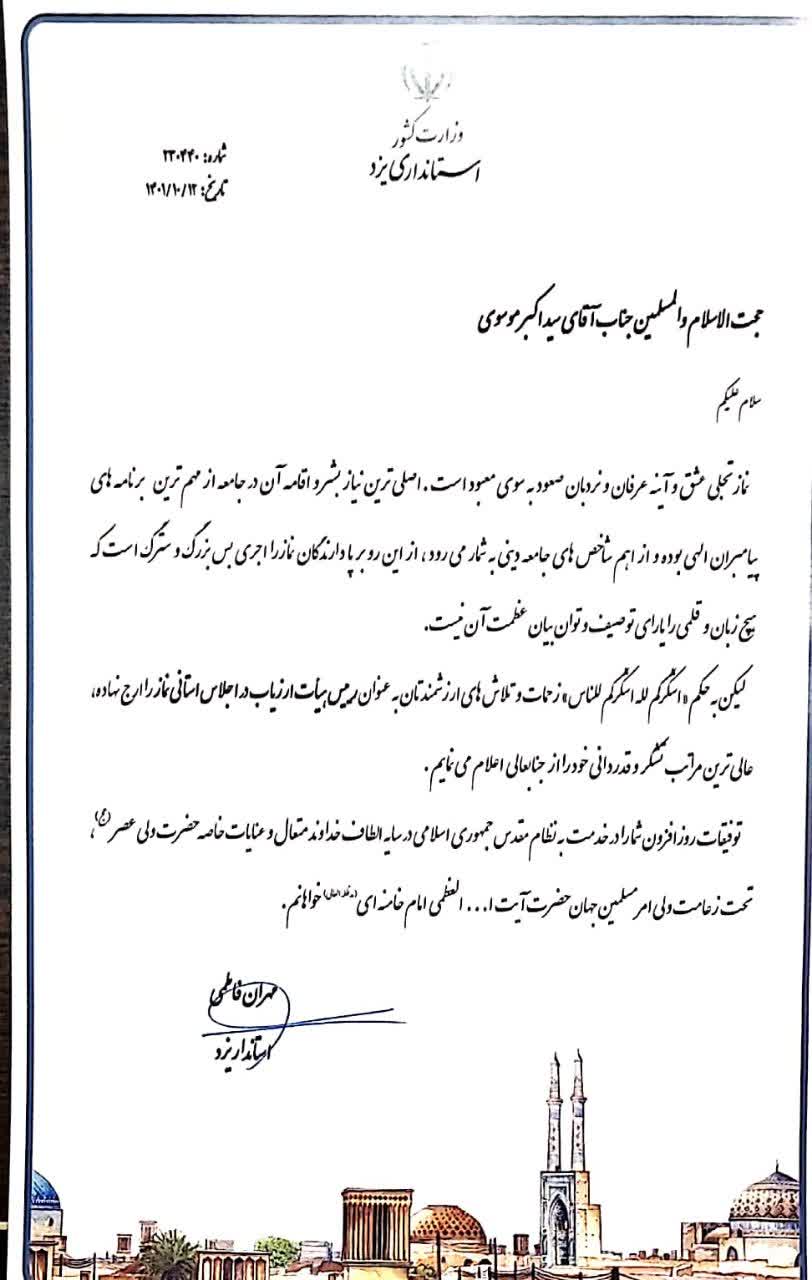 وزارت کشور
استانداری یزد
شماره: ۲۳۰۴۴۰
تاریخ: ۱۴۰۱/۱۰/۱۲
حجت الاسلام والمسلمین جناب آقای سید اکبر موسوی
سلام علیکم
نماز تجلی عشق و آینه عرفان و نردبان صعود به سوی معبود است. اصلی ترین نیاز بشر و اقامه آن در جامعه از مهم ترین برنامه های
پیامبران الهی بوده و از اهم شاخص های جامعه دینی به شمار می رود، از این رو بر پا دارندگان نماز را اجری بس بزرگ و سترگ است که
هیچ زبان و قلمی را یارای توصیف و توان بیان عظمت آن نیست.
لیکن به حکم «اشکرکم لله اشکرکم للناس» زحمات و تلاش های ارزشمندتان به عنوان رییس هیأت ارزیاب در اجلاس استانی نماز را ارج نهاده،
عالی ترین مراتب تشکر و قدردانی خود را از جنابعالی اعلام می نمایم.
توفیقات روزافزون شما را در خدمت به نظام مقدس جمهوری اسلامی در سایه الطاف خداوند متعال و عنایات خاصه حضرت ولی عصر (عج)،
تحت زعامت ولی امر مسلمین جهان حضرت آیت ا... العظمی امام خامنه ای (مدظله العالی) خواهانم.
مهران فاطمی
استاندار یزد